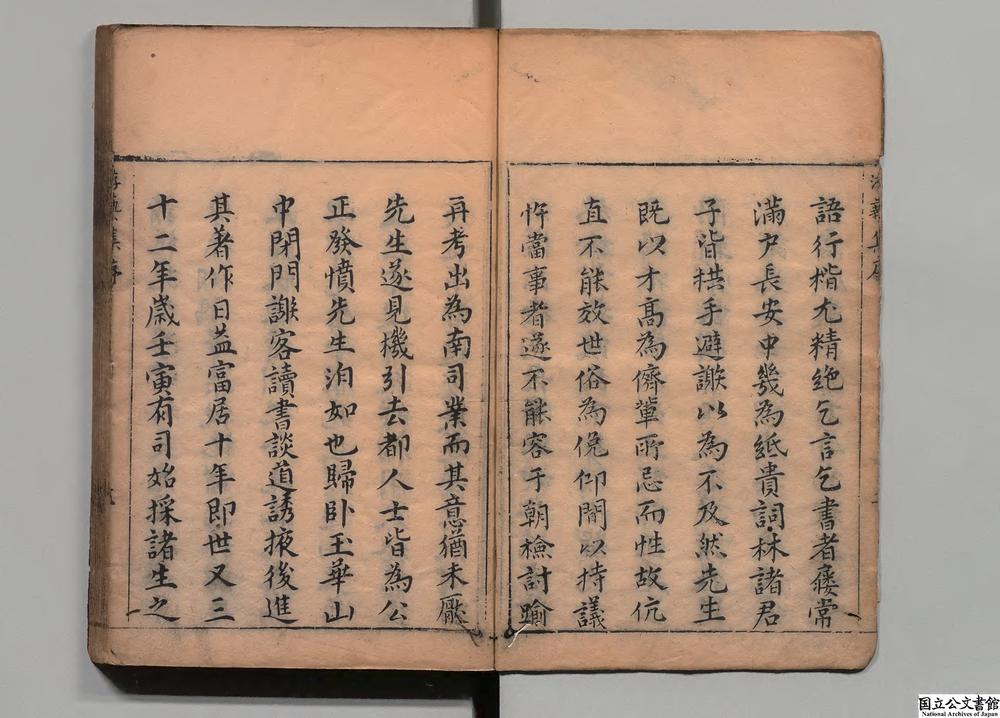 語行楷尤精絶乞言乞書者屨常
滿戸長安中幾為紙貴詞林諸君
子皆拱手避謝以為不及然先生
既以才高為儕輩所忌而性故伉
直不能效世俗為俛仰間以持議
忤當事者遂不能容于朝檢討踰
再考出為南司業而其意猶未厭
先生遂見機引去都人士皆為公
正發憤先生泊如也歸卧玉華山
中閉門謝客讀書談道誘掖後進
其著作日益富居十年即世又三
十二年歳壬寅有司始採諸生之
集序
国立公文書館
National Archives of Japan